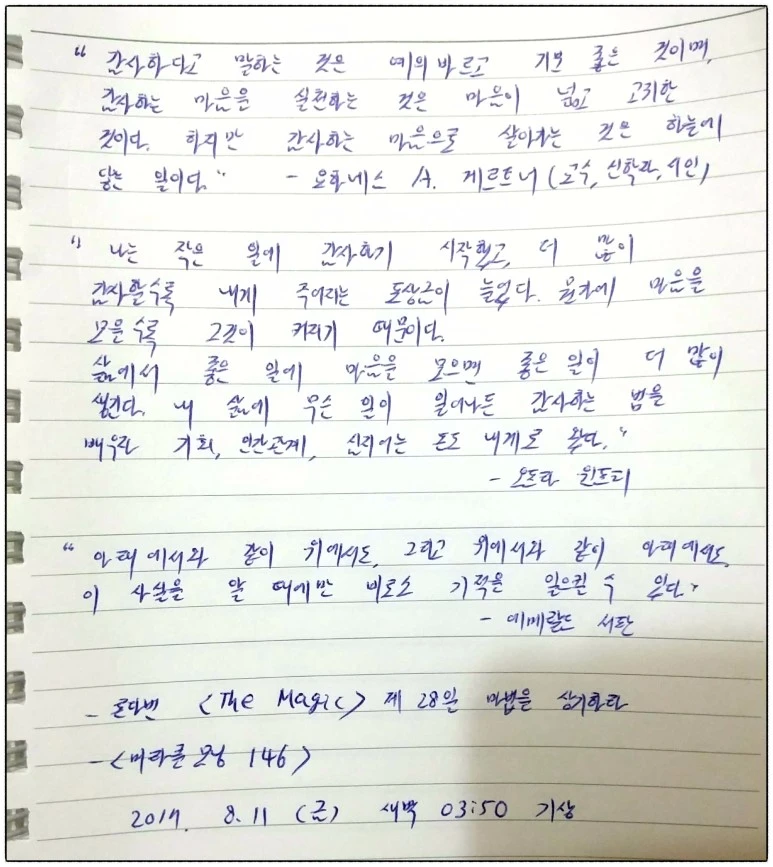 “ 감사하다고 말하는 것은 예의 바르고 기분 좋은 것이며,
감사하는 마음을 실천하는 것은 마음이 넓고 고귀한
것이다. 하지만 감사하는 마음으로 살아가는 것은 하늘에
닿는 일이다.” - 요하네스 A. 게르트너 (교수, 신학자, 시인)
“ 나는 작은 일에 감사하기 시작했고, 더 많이
감사할수록 내게 주어지는 보상금이 늘었다. 뭔가에 마음을
모을수록 그것이 커지기 때문이다.
삶에서 좋은 일에 마음을 모으면 좋은 일이 더 많이
생긴다. 내 삶에 무슨 일이 일어나든 감사하는 법을
배우자 기회, 인간관계, 심지어는 돈도 내게로 왔다.”
- 오프라 윈프리
“ 아래에서와 같이 위에서도, 그리고 위에서와 같이 아래에서도.
이 사실을 알 때에만 비로소 기적을 일으킬 수 있다.”
- 에메랄드 서판
- 론다번 <The Magic> 제 28일 마법을 상기하라
- <미라클모닝 146>
2017. 8. 11 (금) 새벽 03:50 기상